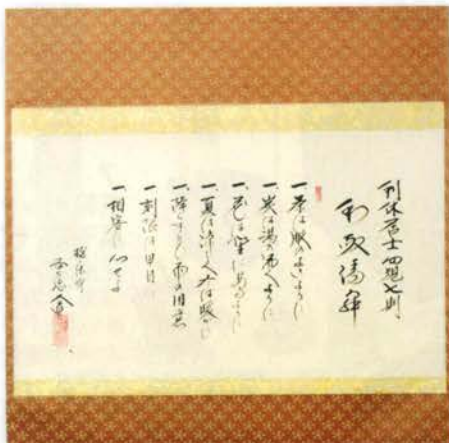 利休居士四規七則
和敬清寂
一、茶は服のよいように
一、炭は湯の沸くように
一、花は野にあるように
一、夏は涼しく冬は暖かに
一、降らずとも雨の用意
一、刻限は早目
一、相客に心せよ